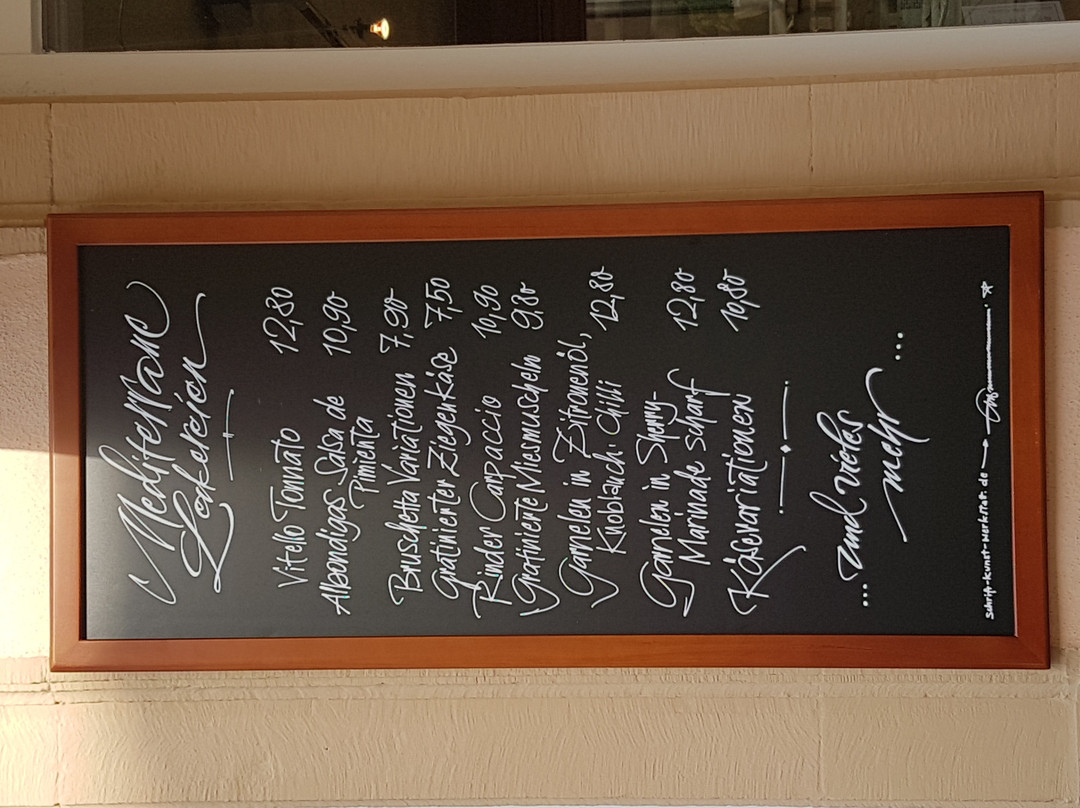 Mediterrane
Lekereien
Vitello Tonnato 12,80
Albondigas Salsa de 10,90
Pimienta
Bruschetta Variationen 7,90
Gratinierter Ziegenkäse 7,50
Rinder Carpaccio 10,90
Gratinierte Miesmuscheln 9,80
Garnelen in Zitronenöl,
Knoblauch Chilli 12,80
Garnelen in Sherry-
Marinade scharf 12,80
Käsevariationen 10,80
... und vieles
mehr ...
schrift-kunst-werkstat.de